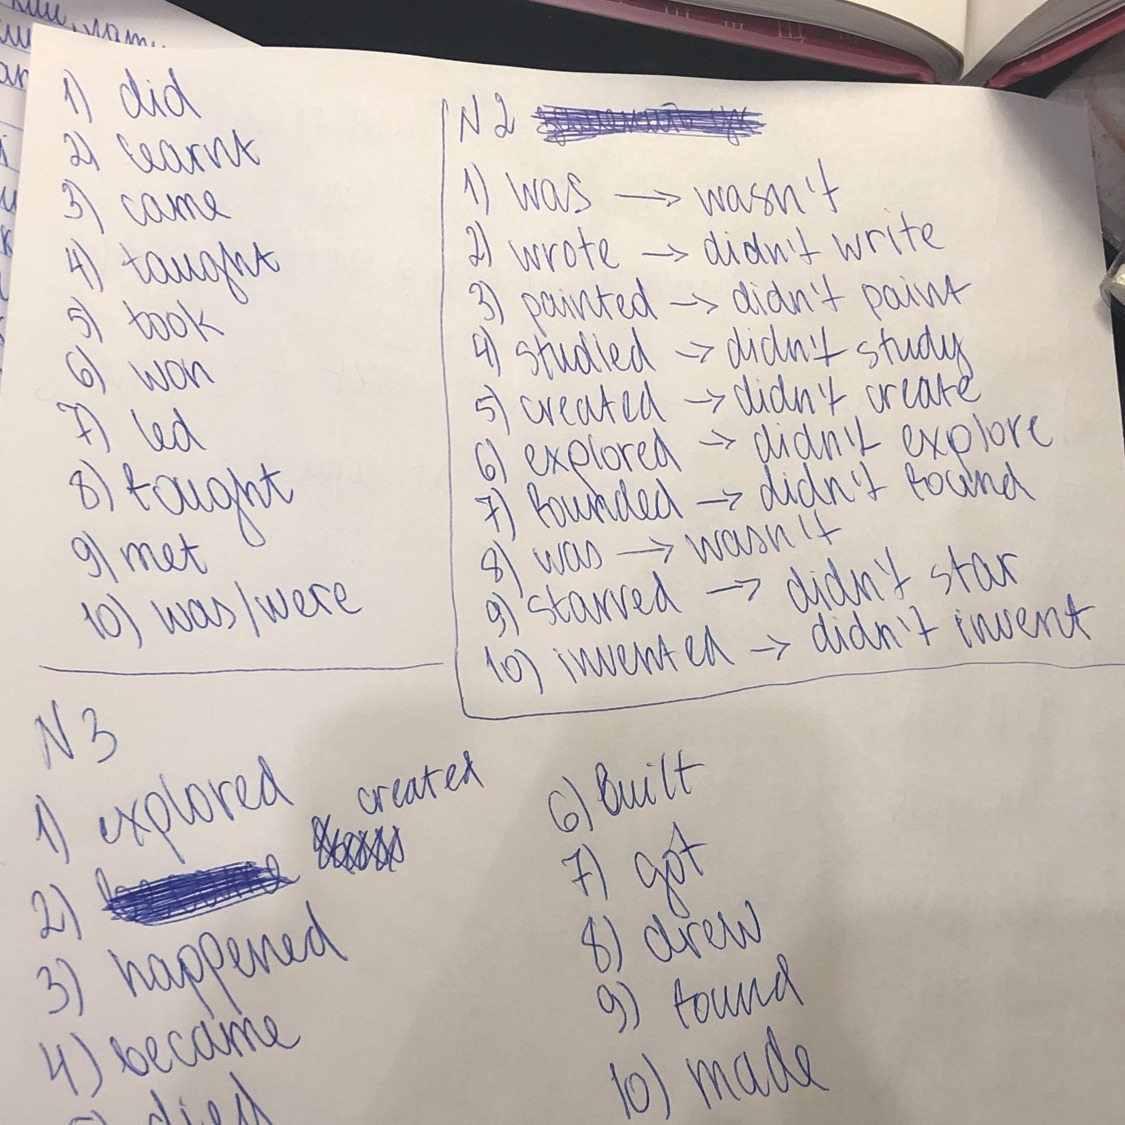 1) did
2) learnt
3) came
4) taught
5) took
6) won
7) led
8) fought
9) met
10) was/were
N2
1) was → wasn't
2) wrote → didn't write
3) painted → didn't paint
4) studied → didn't study
5) created → didn't create
6) explored → didn't explore
7) founded → didn't found
8) was → wasn't
9) starred → didn't star
10) invented → didn't invent
N3
1) explored
2) created
3) happened
4) became
5) died
6) built
7) got
8) drew
9) found
10) made